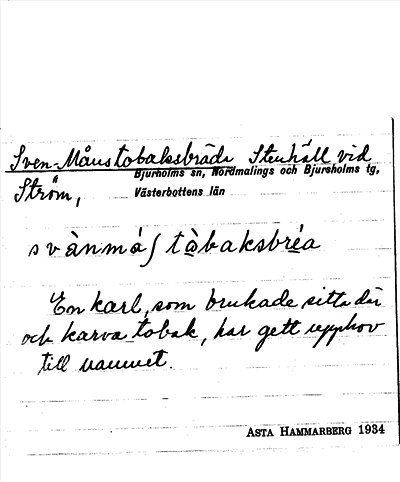 Sven-Måns tobaksbräda Stenhäll vid
Bjurholms sn, Nordmalings och Bjurholms tg,
Ström,
Västerbottens län
svànmáʃ tàbaksbréa
En karl, som brukade sitta där
och karva tobak, har gett upphov
till namnet.
ASTA HAMMARBERG 1934